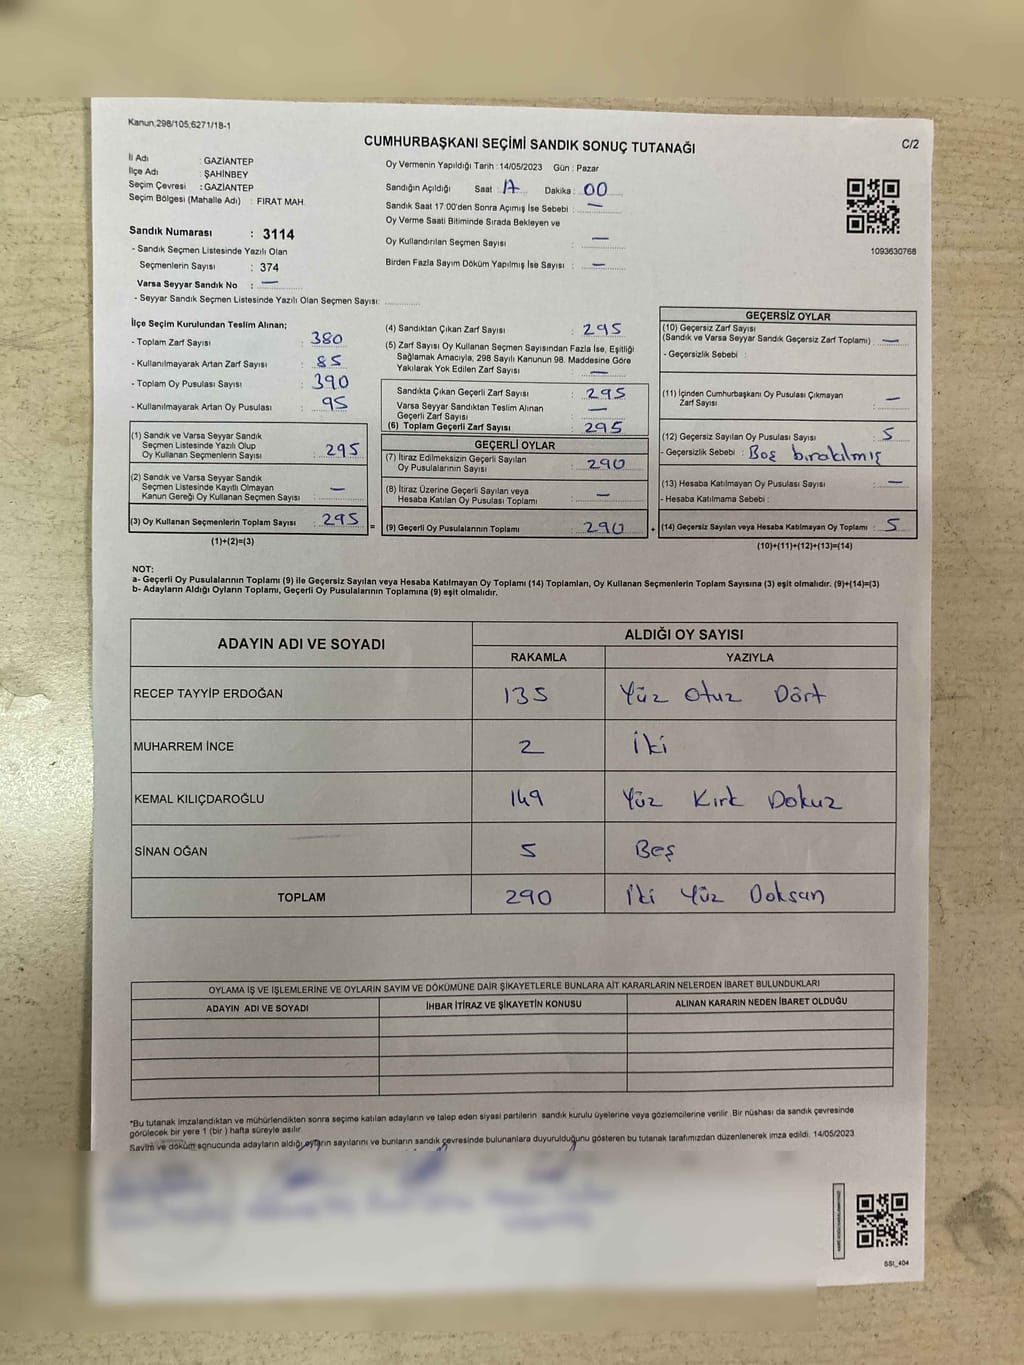 Kanun;298/105,6271/18-1
CUMHURBAŞKANI SEÇİMİ SANDIK SONUÇ TUTANAĞI
C/2
İl Adı : GAZİANTEP
İlçe Adı : ŞAHİNBEY
Seçim Çevresi : GAZİANTEP
Seçim Bölgesi (Mahalle Adı) : FIRAT MAH.
Oy Vermenin Yapıldığı Tarih : 14/05/2023 Gün : Pazar
Sandığın Açıldığı Saat : 17 Dakika : 00
Sandık Saat 17:00'den Sonra Açımış İse Sebebi : —
Oy Verme Saati Bitiminde Sırada Bekleyen ve
Oy Kullandırılan Seçmen Sayısı : —
Birden Fazla Sayım Döküm Yapılmış İse Sayısı : —
1093630768
Sandık Numarası : 3114
- Sandık Seçmen Listesinde Yazılı Olan
Seçmenlerin Sayısı : 374
Varsa Seyyar Sandık No : —
- Seyyar Sandık Seçmen Listesinde Yazılı Olan Seçmen Sayısı:
İlçe Seçim Kurulundan Teslim Alınan;
- Toplam Zarf Sayısı : 380
- Kullanılmayarak Artan Zarf Sayısı : 85
- Toplam Oy Pusulası Sayısı : 390
- Kullanılmayarak Artan Oy Pusulası : 95
(1) Sandık ve Varsa Seyyar Sandık
Seçmen Listesinde Yazılı Olup
Oy Kullanan Seçmenlerin Sayısı : 295
(2) Sandık ve Varsa Seyyar Sandık
Seçmen Listesinde Kayıtlı Olmayan
Kanun Gereği Oy Kullanan Seçmen Sayısı : —
(3) Oy Kullanan Seçmenlerin Toplam Sayısı : 295 =
(1)+(2)=(3)
(4) Sandıktan Çıkan Zarf Sayısı : 295
(5) Zarf Sayısı Oy Kullanan Seçmen Sayısından Fazla İse, Eşitliği
Sağlamak Amacıyla, 298 Sayılı Kanunun 98. Maddesine Göre
Yakılarak Yok Edilen Zarf Sayısı : —
Sandıkta Çıkan Geçerli Zarf Sayısı : 295
Varsa Seyyar Sandıktan Teslim Alınan
Geçerli Zarf Sayısı : —
(6) Toplam Geçerli Zarf Sayısı : 295
GEÇERLİ OYLAR
(7) İtiraz Edilmeksizin Geçerli Sayılan
Oy Pusulalarının Sayısı : 290
(8) İtiraz Üzerine Geçerli Sayılan veya
Hesaba Katılan Oy Pusulası Toplamı : —
(9) Geçerli Oy Pusulalarının Toplamı : 290 +
GEÇERSİZ OYLAR
(10) Geçersiz Zarf Sayısı
(Sandık ve Varsa Seyyar Sandık Geçersiz Zarf Toplamı) : —
- Geçersizlik Sebebi :
(11) İçinden Cumhurbaşkanı Oy Pusulası Çıkmayan
Zarf Sayısı : —
(12) Geçersiz Sayılan Oy Pusulası Sayısı : 5
- Geçersizlik Sebebi : Boş bırakılmış
(13) Hesaba Katılmayan Oy Pusulası Sayısı : —
- Hesaba Katılmama Sebebi :
(14) Geçersiz Sayılan veya Hesaba Katılmayan Oy Toplamı : 5
(10)+(11)+(12)+(13)=(14)
NOT:
a- Geçerli Oy Pusulalarının Toplamı (9) ile Geçersiz Sayılan veya Hesaba Katılmayan Oy Toplamı (14) Toplamları, Oy Kullanan Seçmenlerin Toplam Sayısına (3) eşit olmalıdır. (9)+(14)=(3)
b- Adayların Aldığı Oyların Toplamı, Geçerli Oy Pusulalarının Toplamına (9) eşit olmalıdır.
ADAYIN ADI VE SOYADI ALDIĞI OY SAYISI
RAKAMLA YAZIYLA
RECEP TAYYİP ERDOĞAN 135 Yüz Otuz Dört
MUHARREM İNCE 2 İki
KEMAL KILIÇDAROĞLU 149 Yüz Kırk Dokuz
SİNAN OĞAN 5 Beş
TOPLAM 290 İki Yüz Doksan
OYLAMA İŞ VE İŞLEMLERİNE VE OYLARIN SAYIM VE DÖKÜMÜNE DAİR ŞİKAYETLERLE BUNLARA AİT KARARLARIN NELERDEN İBARET BULUNDUKLARI
ADAYIN ADI VE SOYADI İHBAR İTİRAZ VE ŞİKAYETİN KONUSU ALINAN KARARIN NEDEN İBARET OLDUĞU
*Bu tutanak imzalandıktan ve mühürlendikten sonra seçime katılan adayların ve talep eden siyasi partilerin sandık kurulu üyelerine veya gözlemcilerine verilir. Bir nüshası da sandık çevresinde
görülecek bir yere 1 (bir) hafta süreyle asılır.
Sayım ve döküm sonucunda adayların aldığı oyların sayılarını ve bunların sandık çevresinde bulunanlara duyurulduğunu gösteren bu tutanak tarafımızdan düzenlenerek imza edildi. 14/05/2023
SSI_404